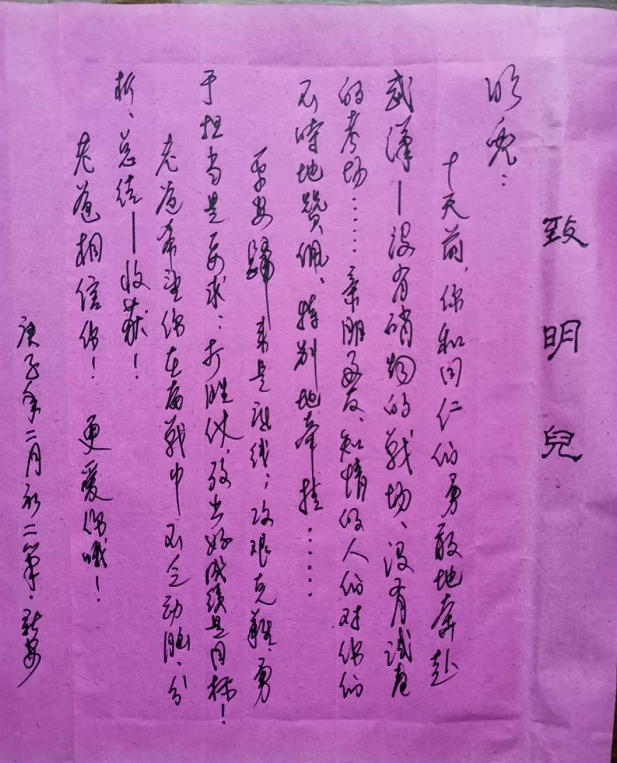 致明兒
明兒：
十天前，你和同仁们勇敢地奔赴
武漢—没有硝烟的戰场、没有试卷
的考场……亲朋好友、知情的人们对你们
不時地赞佩、特别地牵挂……
平安歸来是底线；攻艰克難、勇
于担当是要求；打胜仗，致出好成绩是目标！
老爸希望你在病戰中不乏动脑、分
析、总结—收获！
老爸相信你！更爱你哦！
庚子年二月初二筆.新安